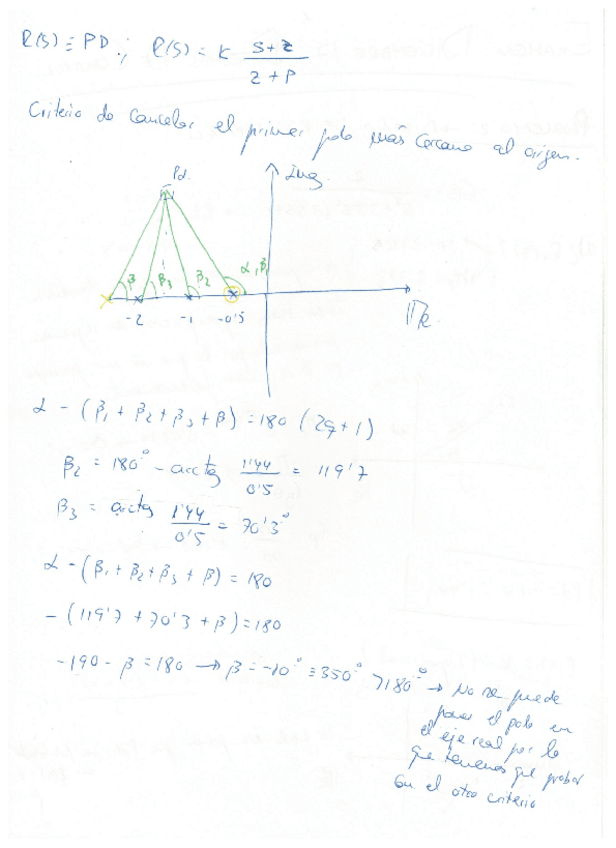 R(s) ≡ PD ∴ R(s) = K (s+z)/(z+p)
Criterio de cancelar el primer polo más cercano al origen.
Pd.
Img
β β3 β2 α, β1
-2 -1 -0'5
Re
α - (β1 + β2 + β3 + β) = 180 (2q+1)
β2 = 180° - arctg 1'44/0'5 = 119'7
β3 = arctg 1'44/0'5 = 70'3°
α - (β1 + β2 + β3 + β) = 180
- (119'7 + 70'3 + β) = 180
-190 - β = 180 → β = -10° ≡ 350° > 180° → No se puede
poner el polo en
el eje real por lo
que tenemos que probar
con el otro criterio